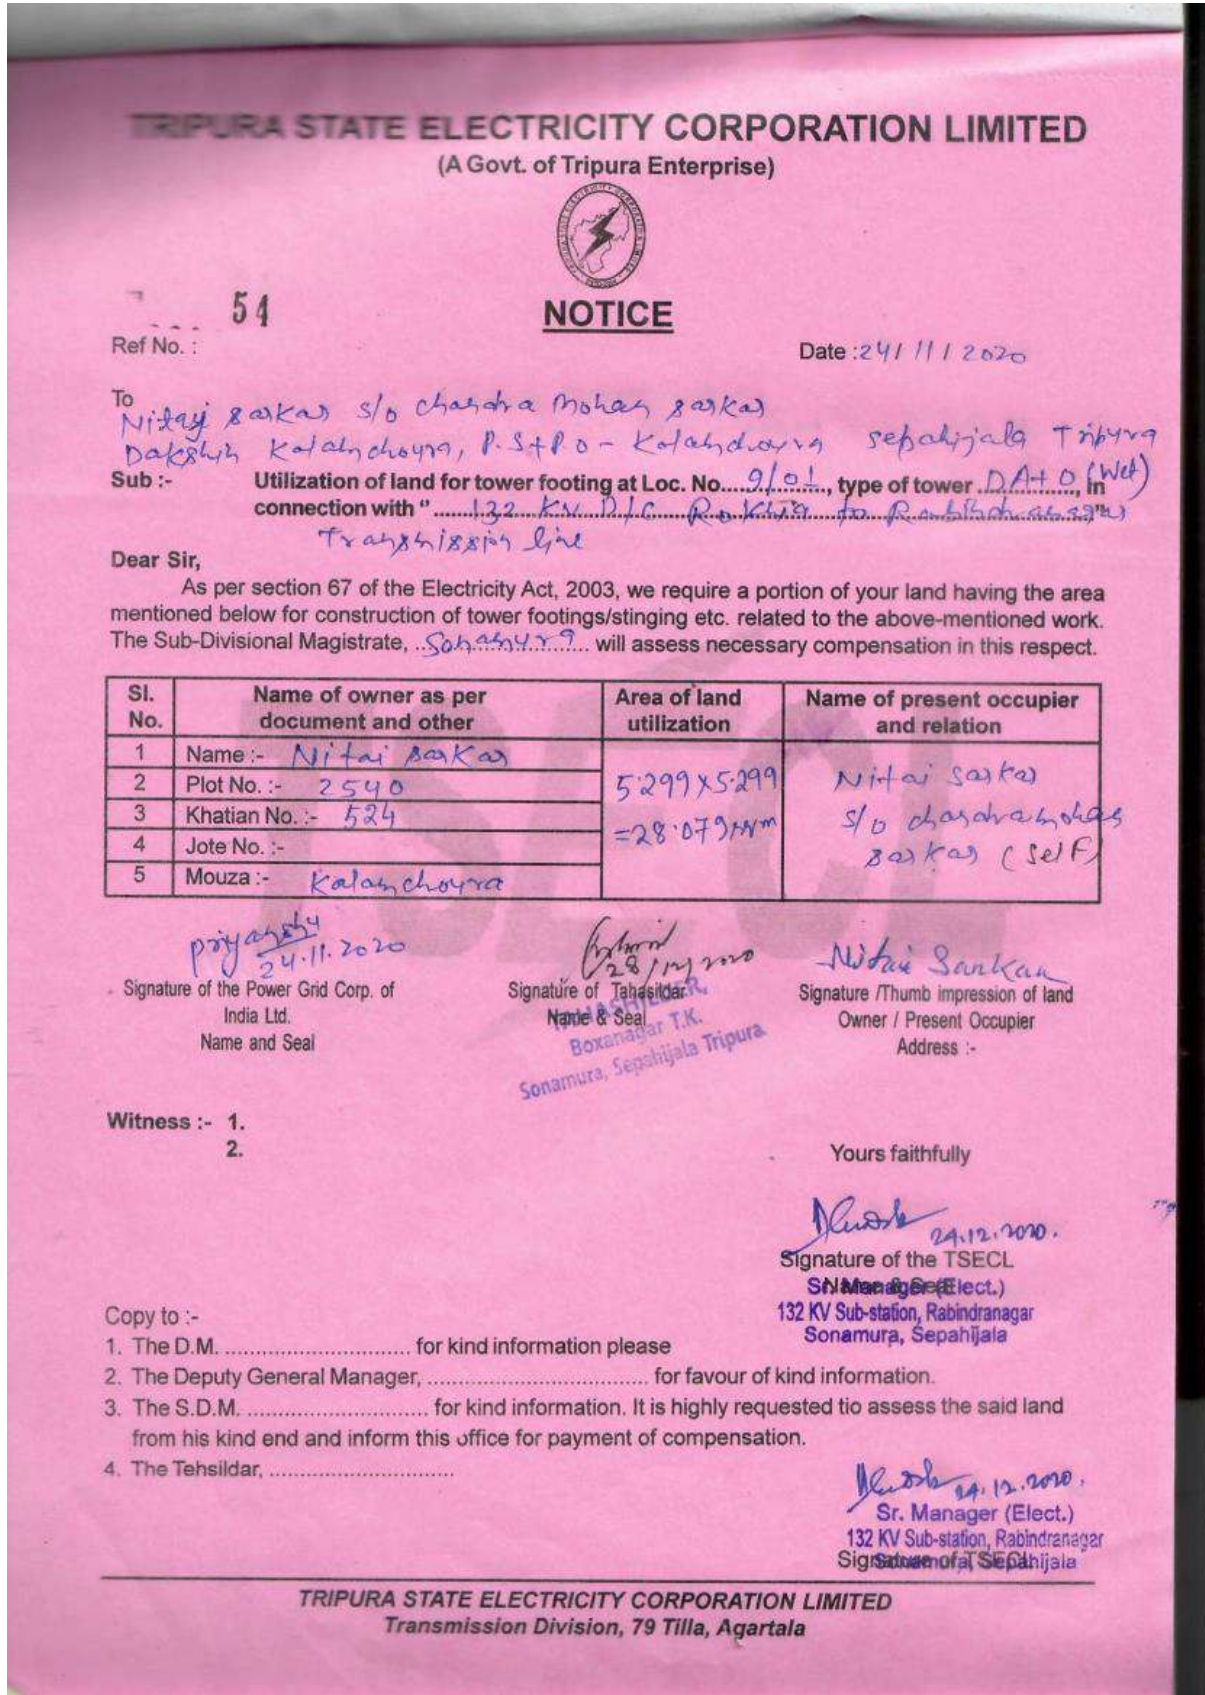 TRIPURA STATE ELECTRICITY CORPORATION LIMITED
(A Govt. of Tripura Enterprise)
54
NOTICE
Ref No. :
Date :24/11/2020
To
Nitay Sarkar s/o chandra Mohan sarkar
Dakshin Kalamchoura, P.S+P.O - Kalamchoura sepahijala Tripura
Sub :- Utilization of land for tower footing at Loc. No....9/01..., type of tower .DA+0 (Wet)..., in
connection with "......132 KV D/C Rokhia to Rabindranagar"
Transmission line
Dear Sir,
As per section 67 of the Electricity Act, 2003, we require a portion of your land having the area
mentioned below for construction of tower footings/stinging etc. related to the above-mentioned work.
The Sub-Divisional Magistrate, ..Sonamura... will assess necessary compensation in this respect.
Sl. No. Name of owner as per document and other Area of land utilization Name of present occupier and relation
1 Name :- Nitai Sarkar
2 Plot No. :- 2540
3 Khatian No. :- 524
4 Jote No. :-
5 Mouza :- Kalamchoura
5.299X5.299
=28.079
Nitai Sarkar
s/o chandramohan
Sarkar (Self)
Priyanshu
24.11.2020
28/12/2020
Nitai Sarkar
Signature of the Power Grid Corp. of
India Ltd.
Name and Seal
Signature of Tahasildar
Name & Seal
TAHASHILDER,
Boxanagar T.K.
Sonamura, Sepahijala Tripura
Signature /Thumb impression of land
Owner / Present Occupier
Address :-
Witness :- 1.
2.
Yours faithfully
24.12.2020.
Signature of the TSECL
Name & Seal
Sr. Manager (Elect.)
132 KV Sub-station, Rabindranagar
Sonamura, Sepahijala
Copy to :-
1. The D.M. .............................. for kind information please
2. The Deputy General Manager, ................................... for favour of kind information.
3. The S.D.M. ............................. for kind information. It is highly requested tio assess the said land
from his kind end and inform this office for payment of compensation.
4. The Tehsildar, ..............................
24.12.2020.
Sr. Manager (Elect.)
132 KV Sub-station, Rabindranagar
Sonamura, Sepahijala
Signature of TSECL
TRIPURA STATE ELECTRICITY CORPORATION LIMITED
Transmission Division, 79 Tilla, Agartala